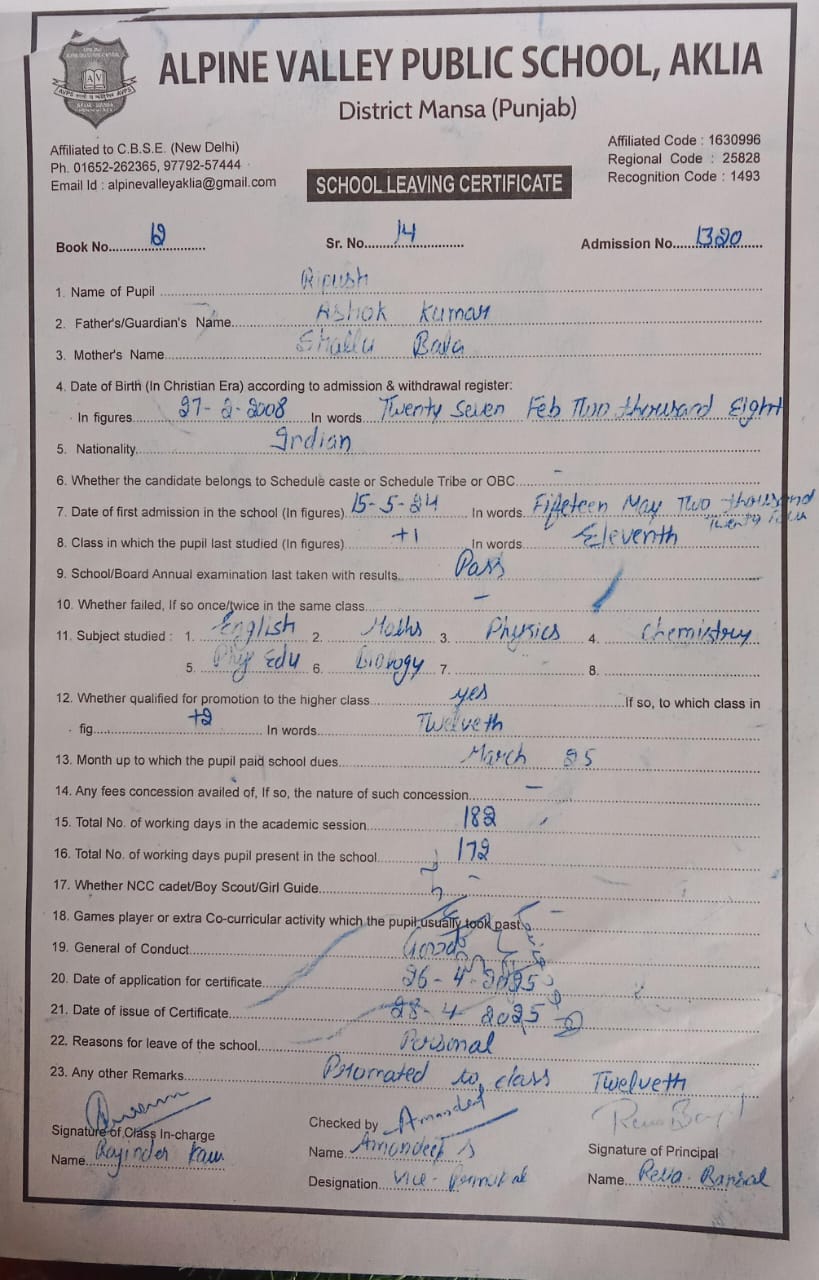 ALPINE VALLEY PUBLIC SCHOOL, AKLIA
District Mansa (Punjab)
Affiliated to C.B.S.E. (New Delhi)
Ph. 01652-262365, 97792-57444
Email Id : alpinevalleyaklia@gmail.com
Affiliated Code : 1630996
Regional Code : 25828
Recognition Code : 1493
SCHOOL LEAVING CERTIFICATE
Book No. 12 Sr. No. 14 Admission No. 1320
1. Name of Pupil
2. Father's/Guardian's Name Ashok Kumar
3. Mother's Name Shallu Bala
4. Date of Birth (In Christian Era) according to admission & withdrawal register:
In figures 27-2-2008 In words Twenty Seven Feb Two thousand Eight
5. Nationality Indian
6. Whether the candidate belongs to Schedule caste or Schedule Tribe or OBC -
7. Date of first admission in the school (In figures) 15-5-24 In words Fifteen May Two thousand
Twenty Four
8. Class in which the pupil last studied (In figures) +1 In words Eleventh
9. School/Board Annual examination last taken with results Pass
10. Whether failed, If so once/twice in the same class -
11. Subject studied : 1. English 2. Maths 3. Physics 4. Chemistry
5. Phy Edu 6. Biology 7. 8.
12. Whether qualified for promotion to the higher class yes If so, to which class in
fig. +2 In words Twelveth
13. Month up to which the pupil paid school dues March 25
14. Any fees concession availed of, If so, the nature of such concession -
15. Total No. of working days in the academic session 182
16. Total No. of working days pupil present in the school 172
17. Whether NCC cadet/Boy Scout/Girl Guide -
18. Games player or extra Co-curricular activity which the pupil usually took past -
19. General of Conduct Good
20. Date of application for certificate 26-4-2025
21. Date of issue of Certificate 28-4-2025
22. Reasons for leave of the school Personal
23. Any other Remarks Promoted to class Twelveth
Signature of Class In-charge
Name Rajinder Kaur
Checked by Amandeep
Name Amandeep S
Designation Vice-
Signature of Principal
Name Rena Bansal